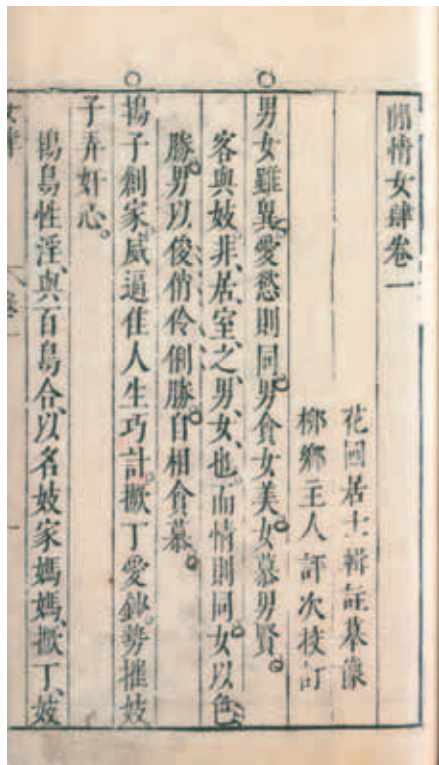 閒情女肆卷一
花國居士輯註
柳鄉主人評次校訂
○男女雖異、愛慾則同。男貪女美。女慕男賢。
客與妓、非、居、室、之、男、女、也、而情則同。女以色
勝。男以俊俏伶俐勝。自相貪慕。
○鴇子創家。威逼佳人生巧計。撅丁愛鈔。勢摧妓
子弄奸心。
鴇鳥性淫、與百鳥合、以名妓家媽媽、撅丁、妓